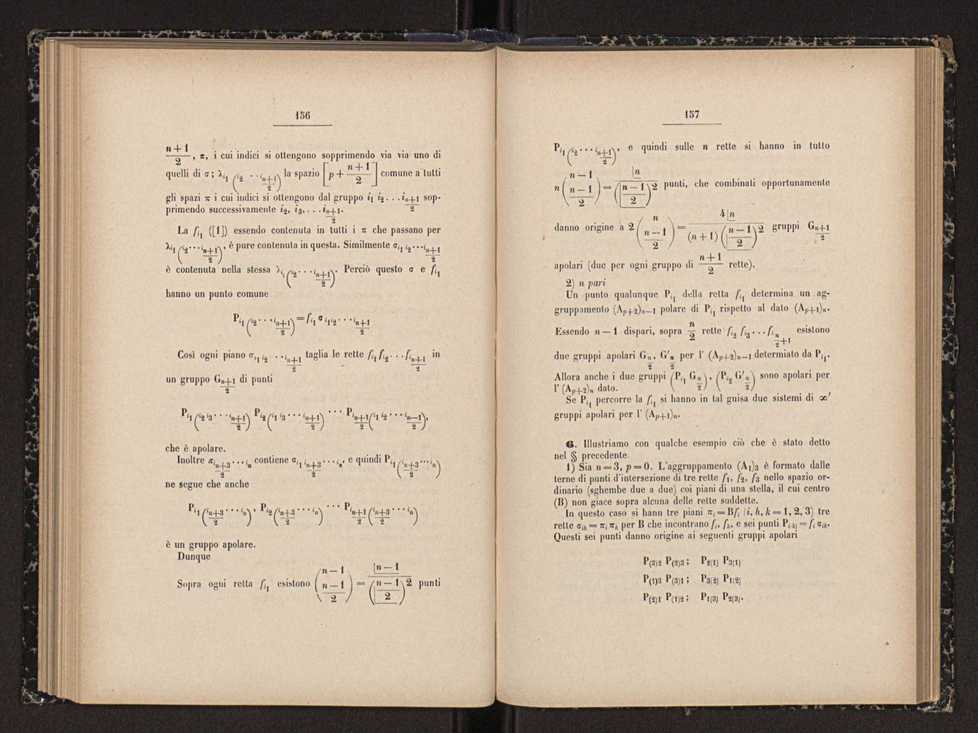 156
n+1/2, π, i cui indici si ottengono sopprimendo via via uno di
quelli di σ; λ_{i_1 (i_2 ... i_{(n+1)/2})} la spazio [p + (n+1)/2] comune a tutti
gli spazi π i cui indici si ottengono dal gruppo i_1 i_2 ... i_{(n+1)/2} sop-
primendo successivamente i_2, i_3, ... i_{(n+1)/2}.
La f_{i_1} ([1]) essendo contenuta in tutti i π che passano per
λ_{i_1 (i_2 ... i_{(n+1)/2})}, è pure contenuta in questa. Similmente σ_{i_1 i_2 ... i_{(n+1)/2}}
è contenuta nella stessa λ_{i_1 (i_2 ... i_{(n+1)/2})}. Perciò questo σ e f_{i_1}
hanno un punto comune
P_{i_1 (i_2 ... i_{(n+1)/2})} = f_{i_1} σ_{i_1 i_2 ... i_{(n+1)/2}}
Così ogni piano σ_{i_1 i_2 ... i_{(n+1)/2}} taglia le rette f_{i_1} f_{i_2} ... f_{i_{(n+1)/2}} in
un gruppo G_{(n+1)/2} di punti
P_{i_1 (i_2 i_3 ... i_{(n+1)/2})} P_{i_2 (i_1 i_3 ... i_{(n+1)/2})} ... P_{i_{(n+1)/2} (i_1 i_2 ... i_{(n-1)/2})},
che è apolare.
Inoltre π_{i_{(n+3)/2} ... i_n} contiene σ_{i_1 i_{(n+3)/2} ... i_n}, e quindi P_{i_1 (i_{(n+3)/2} ... i_n)}
ne segue che anche
P_{i_1 (i_{(n+3)/2} ... i_n)}, P_{i_2 (i_{(n+3)/2} ... i_n)} ... P_{i_{(n+1)/2} (i_{(n+3)/2} ... i_n)}
è un gruppo apolare.
Dunque
Sopra ogni retta f_{i_1} esistono (n-1 / (n-1)/2) = |n-1 / (|(n-1)/2)^2 punti
157
P_{i_1 (i_2 ... i_{(n+1)/2})}, e quindi sulle n rette si hanno in tutto
n (n-1 / (n-1)/2) = |n / (|(n-1)/2)^2 punti, che combinati opportunamente
danno origine a 2 (n / (n-1)/2) = 4|n / (n+1)(|(n-1)/2)^2 gruppi G_{(n+1)/2}
apolari (due per ogni gruppo di (n+1)/2 rette).
2) n pari
Un punto qualunque P_{i_1} della retta f_{i_1} determina un ag-
gruppamento (A_{p+2})_{n-1} polare di P_{i_1} rispetto al dato (A_{p+1})_n.
Essendo n-1 dispari, sopra n/2 rette f_{i_2} f_{i_3} ... f_{i_{n/2+1}} esistono
due gruppi apolari G_{n/2}, G'_{n/2} per l' (A_{p+2})_{n-1} determiato da P_{i_1}.
Allora anche i due gruppi (P_{i_1} G_{n/2}), (P_{i_2} G'_{n/2}) sono apolari per
l' (A_{p+2})_n dato.
Se P_{i_1} percorre la f_{i_1} si hanno in tal guisa due sistemi di ∞'
gruppi apolari per l' (A_{p+1})_n.
6. Illustriamo con qualche esempio ciò che è stato detto
nel § precedente
1) Sia n = 3, p = 0. L'aggruppamento (A_1)_3 è formato dalle
terne di punti d'intersezione di tre rette f_1, f_2, f_3 nello spazio or-
dinario (sghembe due a due) coi piani di una stella, il cui centro
(B) non giace sopra alcuna delle rette suddette.
In questo caso si hann tre piani π_i = B f_i (i, h, k = 1, 2, 3) tre
rette σ_{ik} = π_i π_k per B che incontrano f_i, f_k, e sei punti P_{i(k)} = f_i σ_{ik}.
Questi sei punti danno origine ai seguenti gruppi apolari
P_{(3)2} P_{(2)3}; P_{2(1)} P_{3(1)}
P_{(1)3} P_{(3)1}; P_{3(2)} P_{1(2)}
P_{(2)1} P_{(1)2}; P_{1(3)} P_{2(3)}.